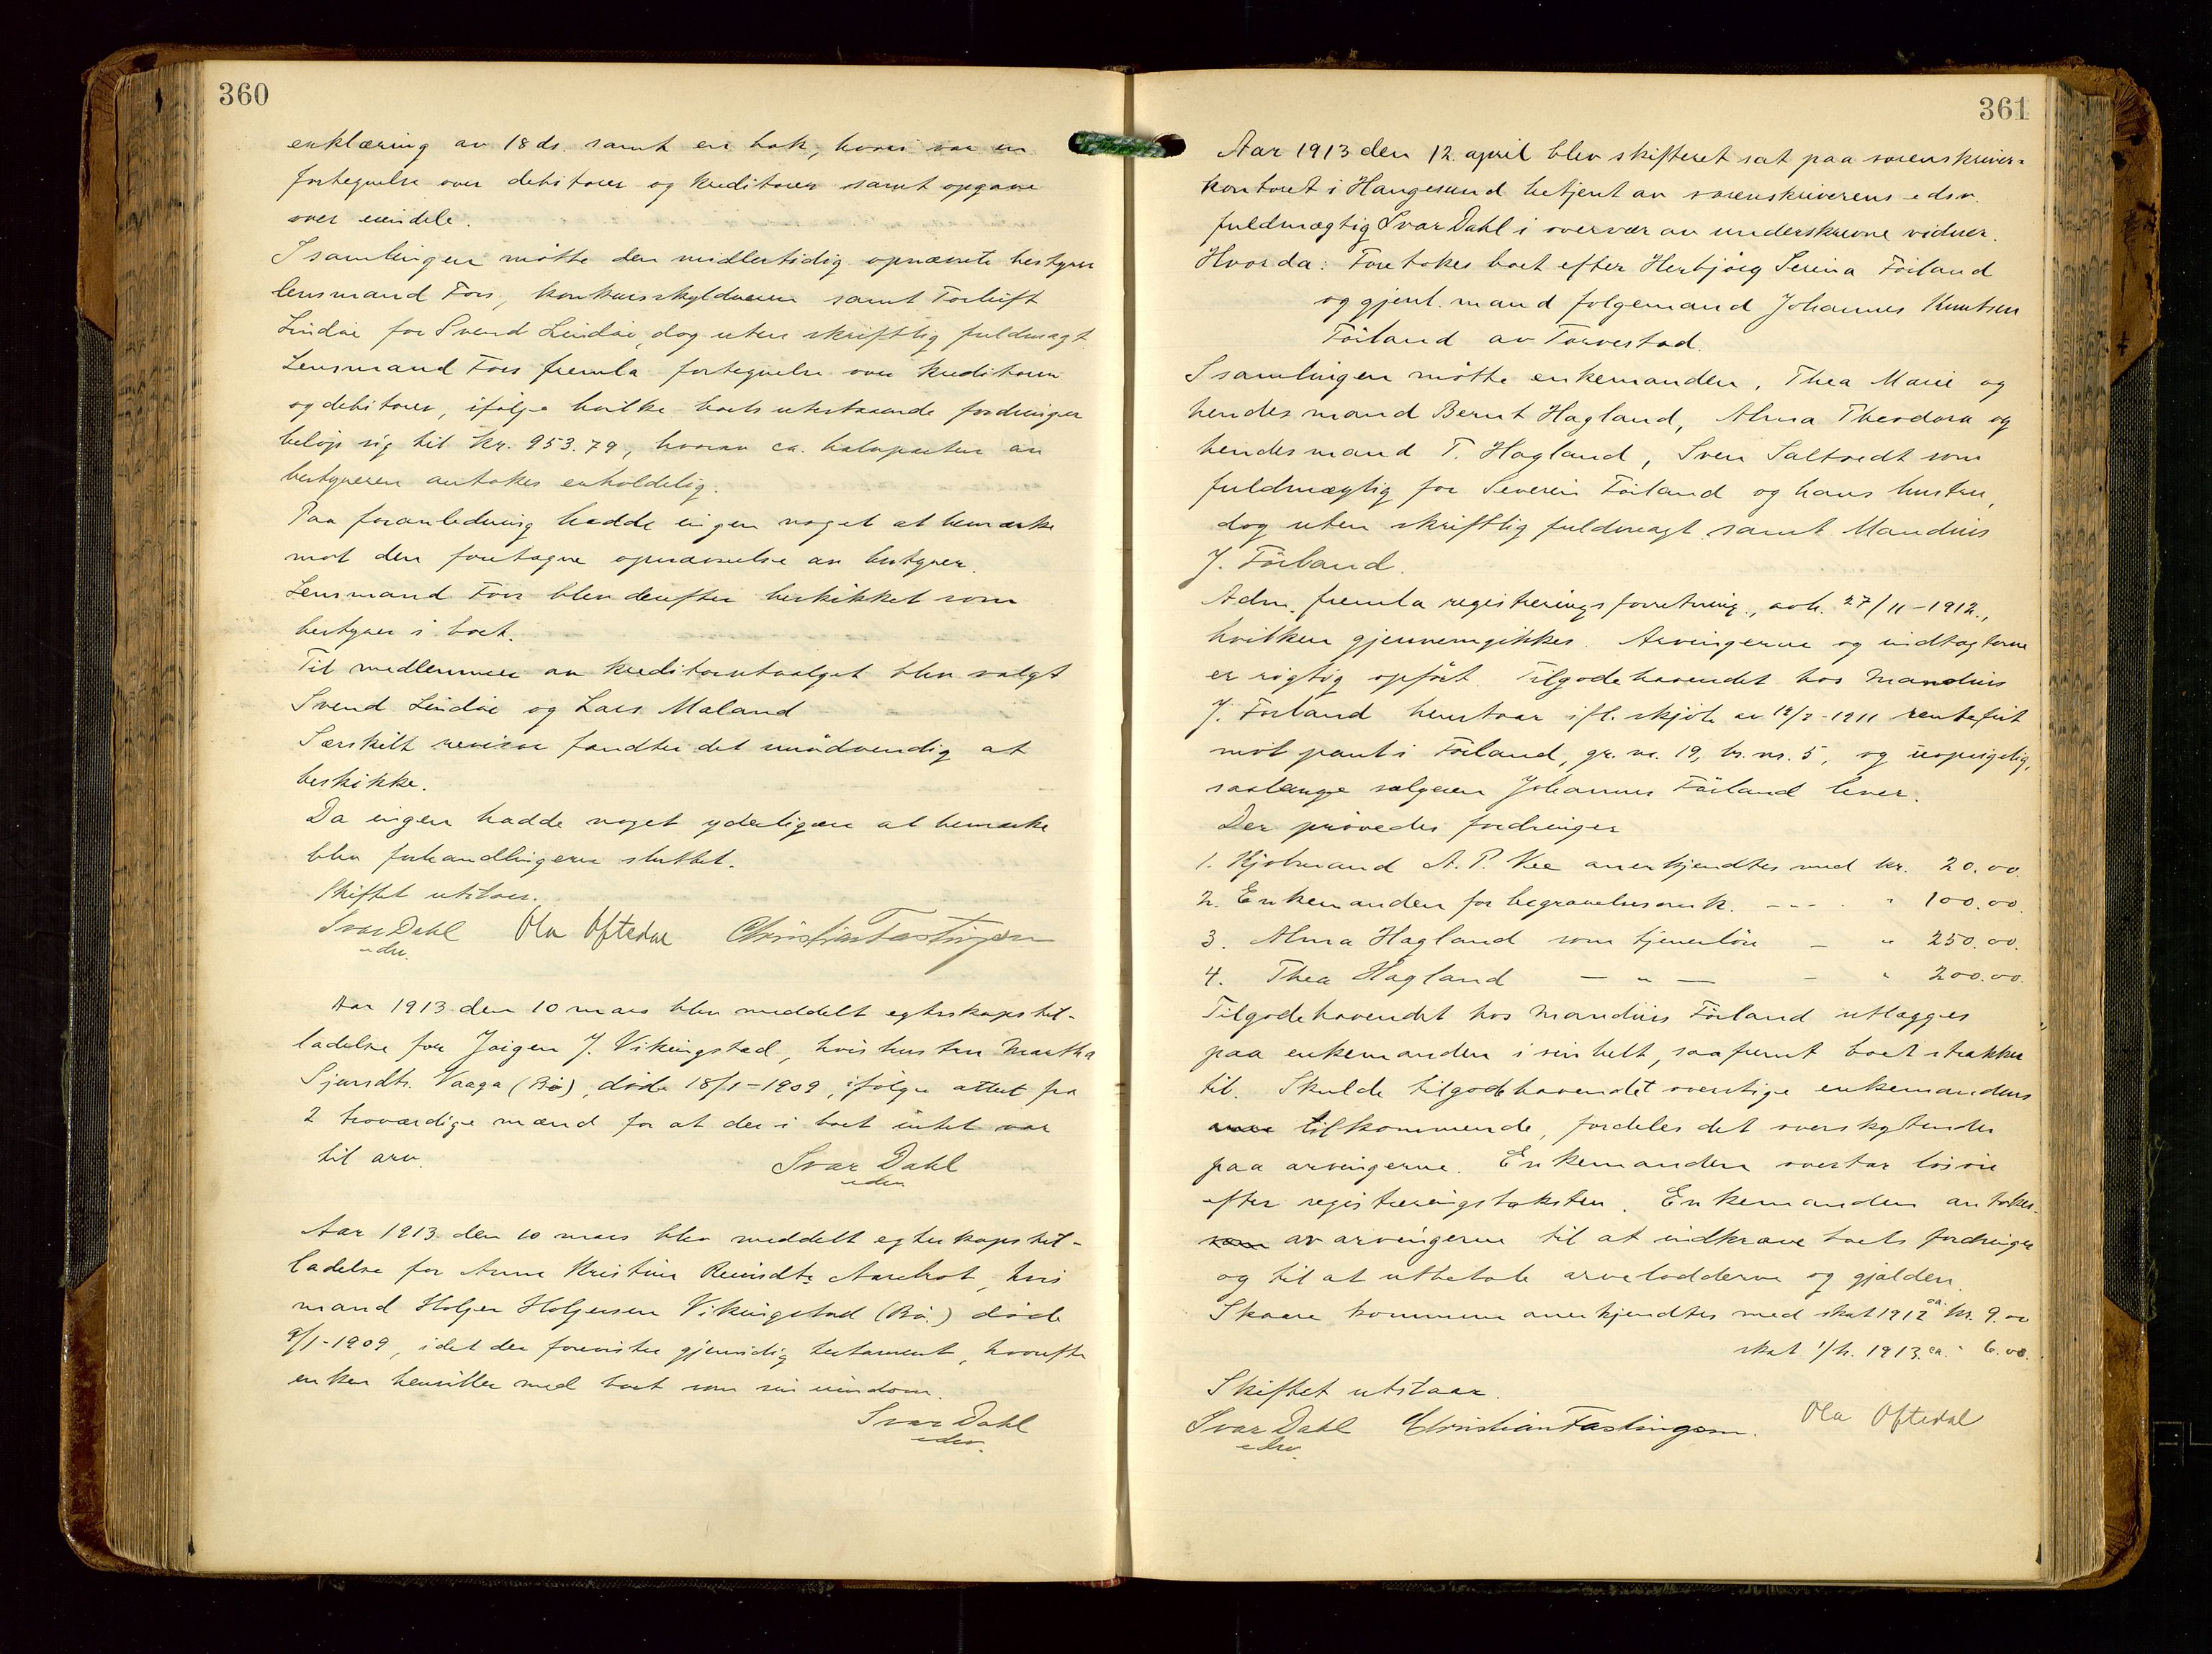 360
erklæring av 18 ds. samt en bok, hvori var en
fortegnelse over debitorer og kreditorer samt opgave
over eiendele.
I samlingen møtte den midlertidig opnævnte bestyrer
lensmand Fors, konkursskyldneren samt Torleif
Lindøe for Svend Lindøe, dog uten skriftlig fuldmagt.
Lensmand Fors fremla fortegnelse over kreditorer
og debitorer, ifølge hvilke boets utestaaende fordringer
beløp sig til kr. 953.79, hvorav ca. halvparten av
bestyreren antokes erholdelig.
Paa foranledning hadde ingen noget at bemærke
mot den foretagne opnævnelse av bestyrer.
Lensmand Fors blev derefter beskikket som
bestyrer i boet.
Til medlemmer av kreditorutvalget blev valgt
Svend Lindøe og Lars Maland
Særskilt revisor fandtes det unødvendig at
beskikke.
Da ingen hadde noget yderligere at bemærke
blev forhandlingerne sluttet.
Skiftet utstaar.
Ivar Dahl Ola Oftedal Christian Fastingsen
edsv.
Aar 1913 den 10 mars blev meddelt egteskapstil-
ladelse for Jørgen J. Vikingstad, hvis hustru Martha
Sjursdtr. Vaaga (Bø), døde 18/1-1909, ifølge attest fra
2 troværdige mænd for at der i boet intet var
til arv.
Ivar Dahl
edsv.
Aar 1913 den 10 mars blev meddelt egteskapstil-
ladelse for Anne Kristine Reinsdtr. hvis
mand Holger Holgersen Vikingstad (Bø.) døde
9/1-1909, idet der forevistes gjensidig testament, hvorefter
enken hensitter med boet som sin eiendom.
Ivar Dahl
edsv.
361
Aar 1913 den 12. april blev skifteret sat paa sorenskriver-
kontoret i Haugesund betjent av sorenskriverens edsv.
fuldmægtig Ivar Dahl i overvær av underskrevne vidner.
Hvorda: Foretokes boet efter Herbjørg Serina Førland
og gjenl. mand følgemand Johannes Knutsen
Førland av Torvestad.
I samlingen møtte enkemanden, Thea Marie og
hendes mand Bernt Hagland, Alma Theodora og
hendes mand T. Hagland, Sven Saltvedt som
fuldmægtig for Severin Førland og hans hustru,
dog uten skriftlig fuldmagt samt Mandius
J. Förland.
Adm. fremla registreringsforretning, avh. 27/11-1912,
hvilken gjennemgikkes. Arvingerne og indtægterne
er rigtig opført. Tilgodehavendet hos Mandius
J. Førland henstaar ifl. skjøte av 12/2-1911 rentefrit
mot pant i Førland, gr. nr. 19, br. nr. 5, og uopsigelig,
saalænge sælgeren Johannes Førland lever.
Der prøvedes fordringer
1. Kjøbmand A. P. Vee anerkjendtes med kr. 20.00.
2. Enkemanden for begravelsesomk. - - - " 100.00.
3. Alma Hagland som tjenerløn - " 250.00.
4. Thea Hagland — " — - " 200.00.
Tilgodehavendet hos Mandius Førland utlægges
paa enkemanden i sin helt, saafremt boet strækker
til. Skulde tilgodehavendet overstige enkemandens
tilkommende, fordeles det overskytende
paa arvingerne. Enkemanden overtar løsøre
efter registreringstaksten. Enkemanden antokes
som av arvingerne til at indkræve boets fordringer
og til at utbetale arvelodderne og gjælden.
Skaare kommune anerkjendtes med skat 1912 ca. kr. 9.00
skat 1/h. 1913 ca. " 6.00.
Skiftet utstaar.
Ivar Dahl Christian Fastingsen. Ola Oftedal
edsv.